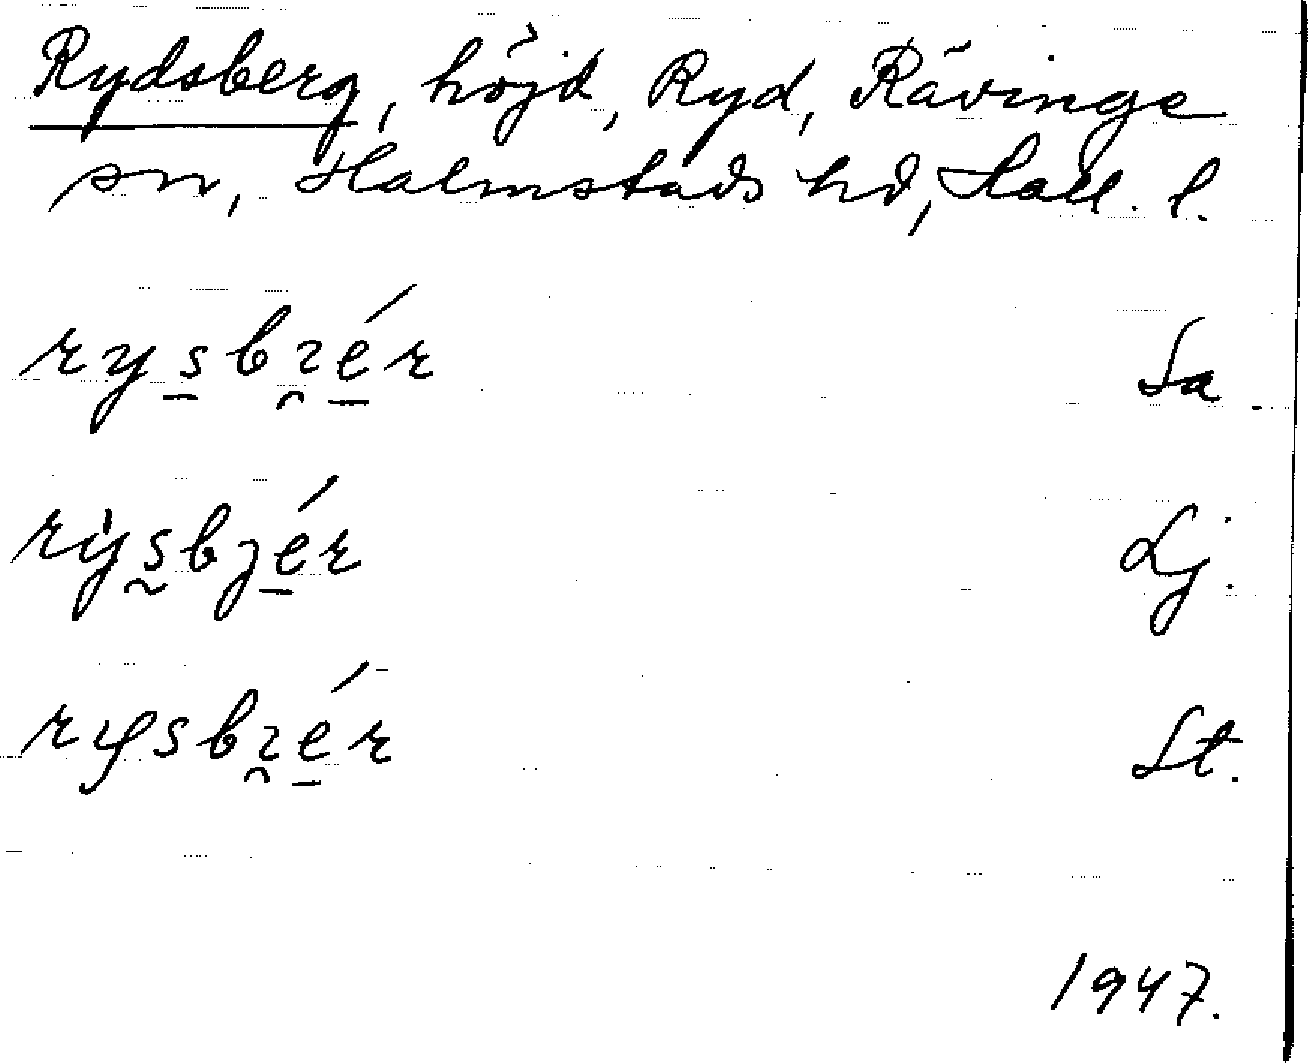 Rydsberg, höjd, Ryd, Rävinge
sn, Halmstads hd, Hall. l.
rysbɿér Sa
rÿsbȷér Lj.
rysbɿér St.
1947.